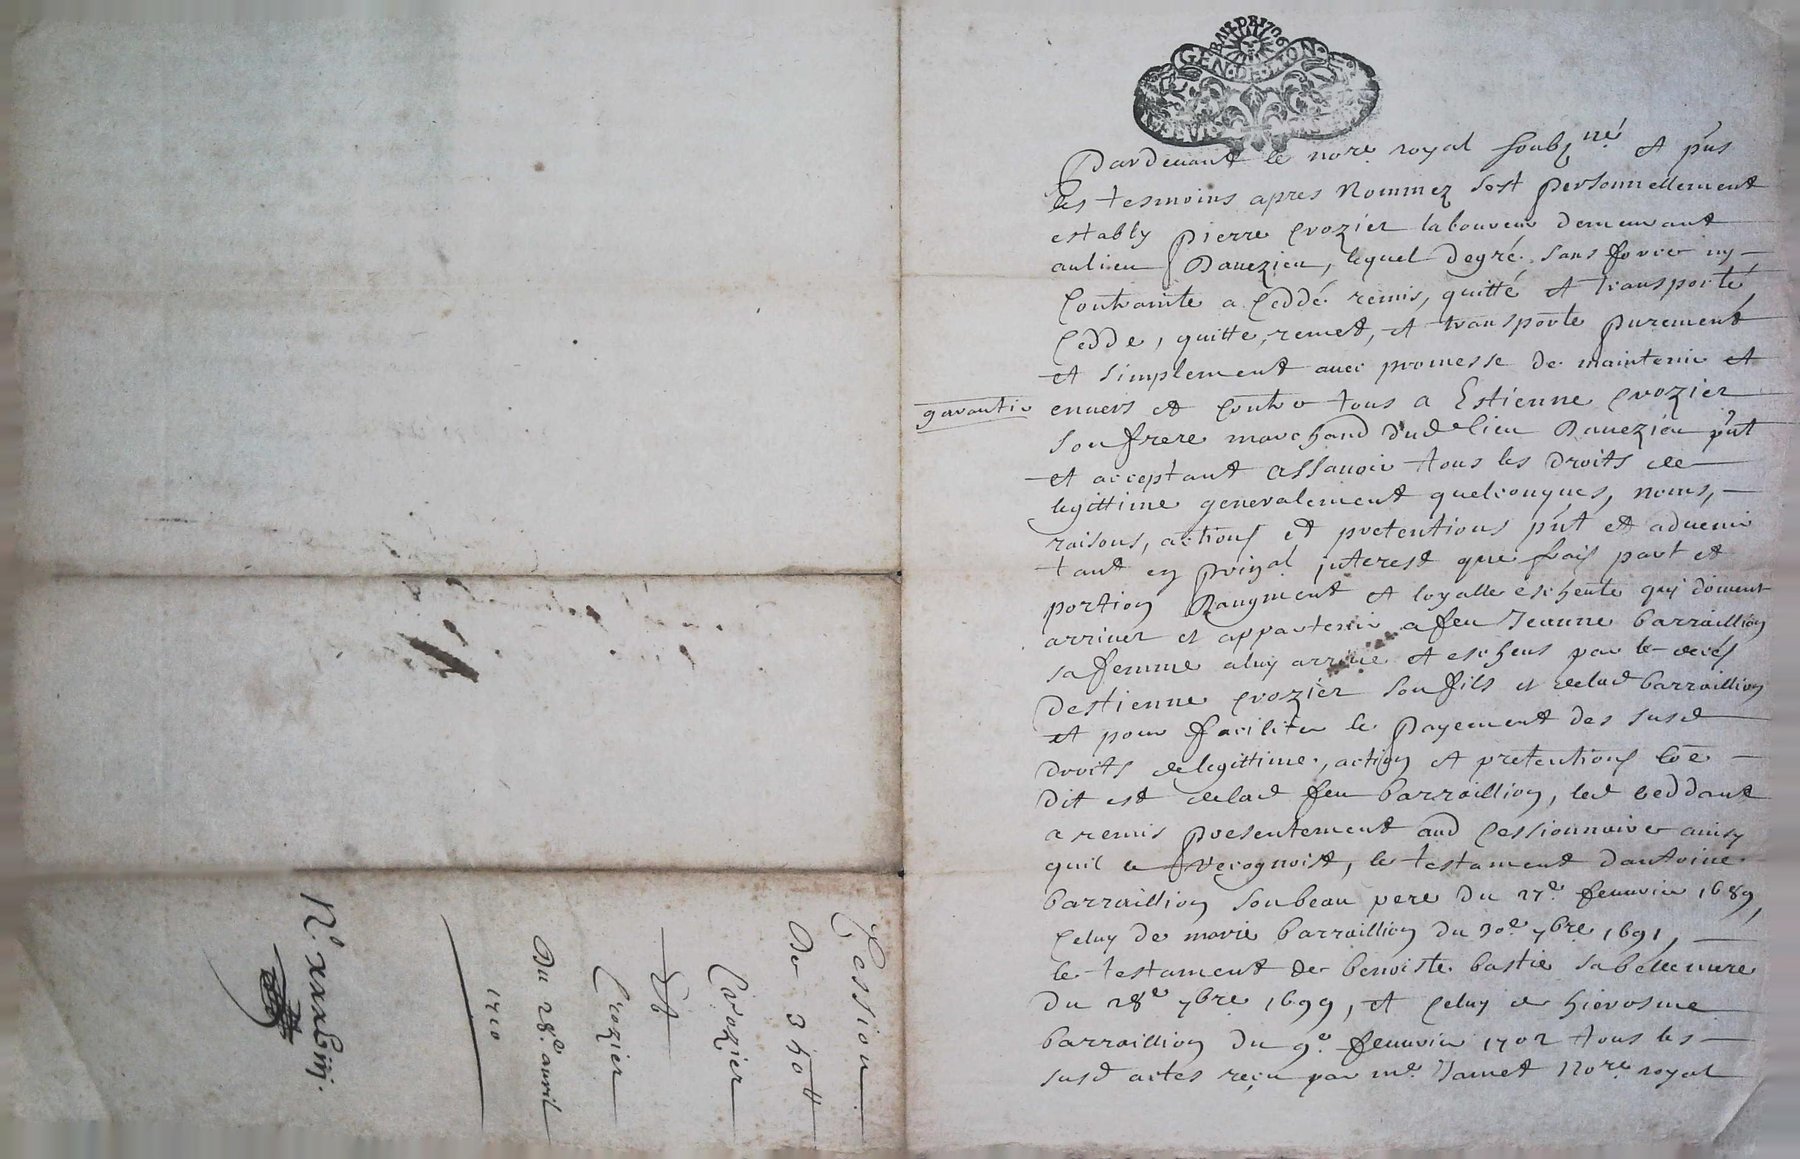 GEN DE LION
Pardevant le nore. royal soubzné et pnts
les tesmoins apres nommez s'est personnellement
estably pierre crozier laboureur demeurant
au lieu Davezieu, lequel degré sans force ny
contrainte a ceddé remis, quitté et transporté,
cedde, quitte, remet, et transporte purement
et simplement avec promesse de maintenir et
garantir
envers et contre tous a Estienne crozier
son frere marchand dud lieu Davezieu pnt
et acceptant assavoir tous les droits de
legittime generalement quelconques, noms,
raisons, actions et pretentions pnt et advenir
tant en prinpal interest que frais part et
portion Daugment et loyalle escheute quy doivent
arriver et appartenir a feu Jeanne barraillion
sa femme a luy arrivé et escheus par le deces
destienne crozier son fils et delad barraillion
et pour faciliter le payement des susd
droits de legittime, action et pretentions cõe
dit est delad feu barraillion, led ceddant
a remis presentement aud cessionnaire ainsy
quil le recognoist, le testament dantoine
barraillion son beau pere du 27e fevvrier 1689,
celuy de marie barraillion du 30e 7bre 1691,
le testament de benoiste bastie sa belle mere
du 28e 7bre 1699, et celuy de hierosme
barraillion du 9e fevvrier 1702 tous les
susd actes reçu par me. Jamet nore. royal
Cession
De 350tt
Crozier
Et
Crozier
Du 28e avril
1710
No. xxxbiij.